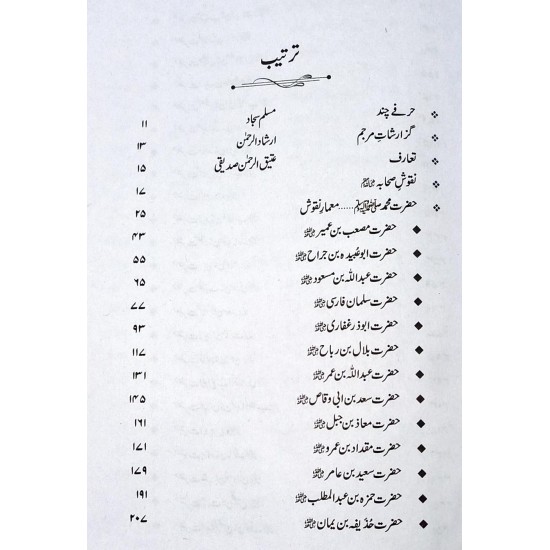 ترتیب
حرفے چند مسلم سجاد ۱۱
گزارشاتِ مرجم ارشاد الرحمٰن ۱۳
تعارف عتیق الرحمٰن صدیقی ۱۵
نقوشِ صحابہ رضی اللہ عنہم ۱۷
حضرت محمد صلی اللہ علیہ وسلم ...... معمارِ نقوش ۲۵
حضرت مصعب بن عمیر رضی اللہ عنہ ۴۳
حضرت ابوعُبیدہ بن جراح رضی اللہ عنہ ۵۵
حضرت عبداللہ بن مسعود رضی اللہ عنہ ۶۵
حضرت سلمان فارسی رضی اللہ عنہ ۷۷
حضرت ابوذر غفاری رضی اللہ عنہ ۹۳
حضرت بلال بن رباح رضی اللہ عنہ ۱۱۷
حضرت عبداللہ بن عمر رضی اللہ عنہ ۱۳۱
حضرت سعد بن ابی وقاص رضی اللہ عنہ ۱۴۵
حضرت معاذ بن جبل رضی اللہ عنہ ۱۶۱
حضرت مقداد بن عمرو رضی اللہ عنہ ۱۷۱
حضرت سعید بن عامر رضی اللہ عنہ ۱۷۹
حضرت حمزہ بن عبدالمطلب رضی اللہ عنہ ۱۹۱
حضرت حُذیفہ بن یمان رضی اللہ عنہ ۲۰۷